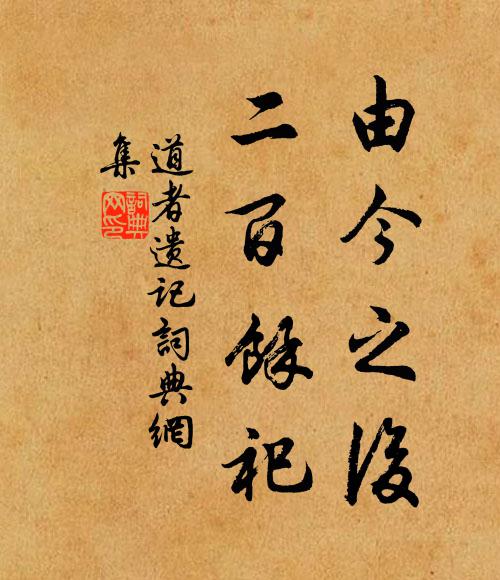 由今之後
二百餘祀
道者遺記詞典網
集
詞典網印